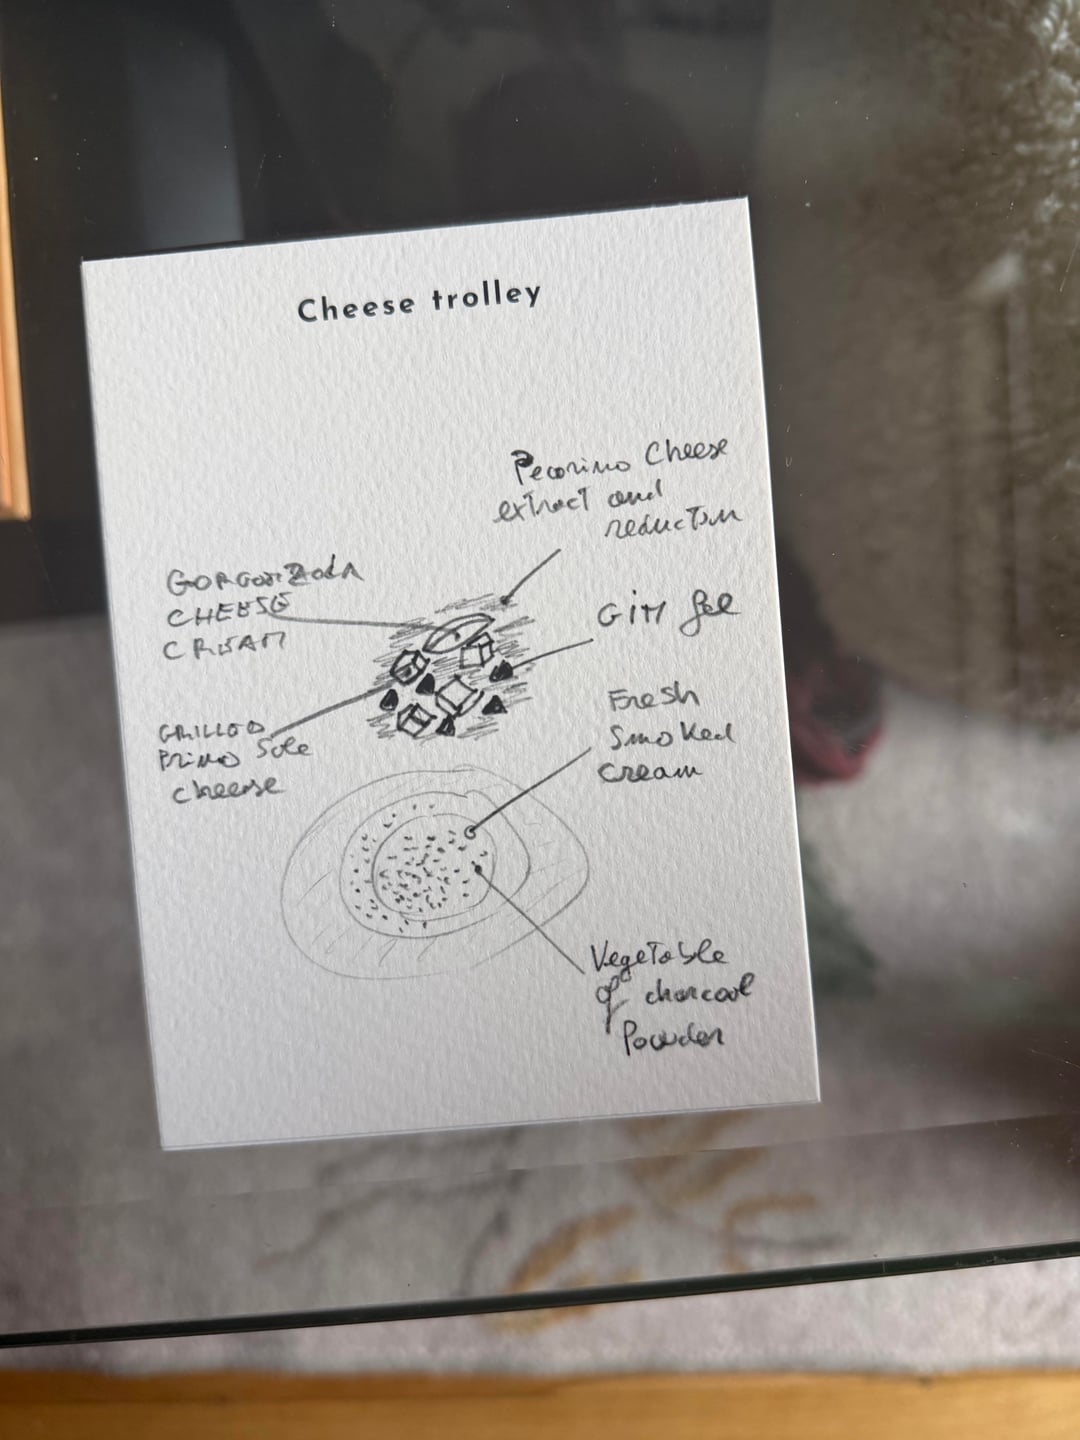 Cheese trolley
Pecorino Cheese
extract and
reduction
GORGONZOLA
CHEESE
CREAM
GIN gel
GRILLED
Primo Sole
cheese
Fresh
Smoked
cream
Vegetable
of charcoal
Powder